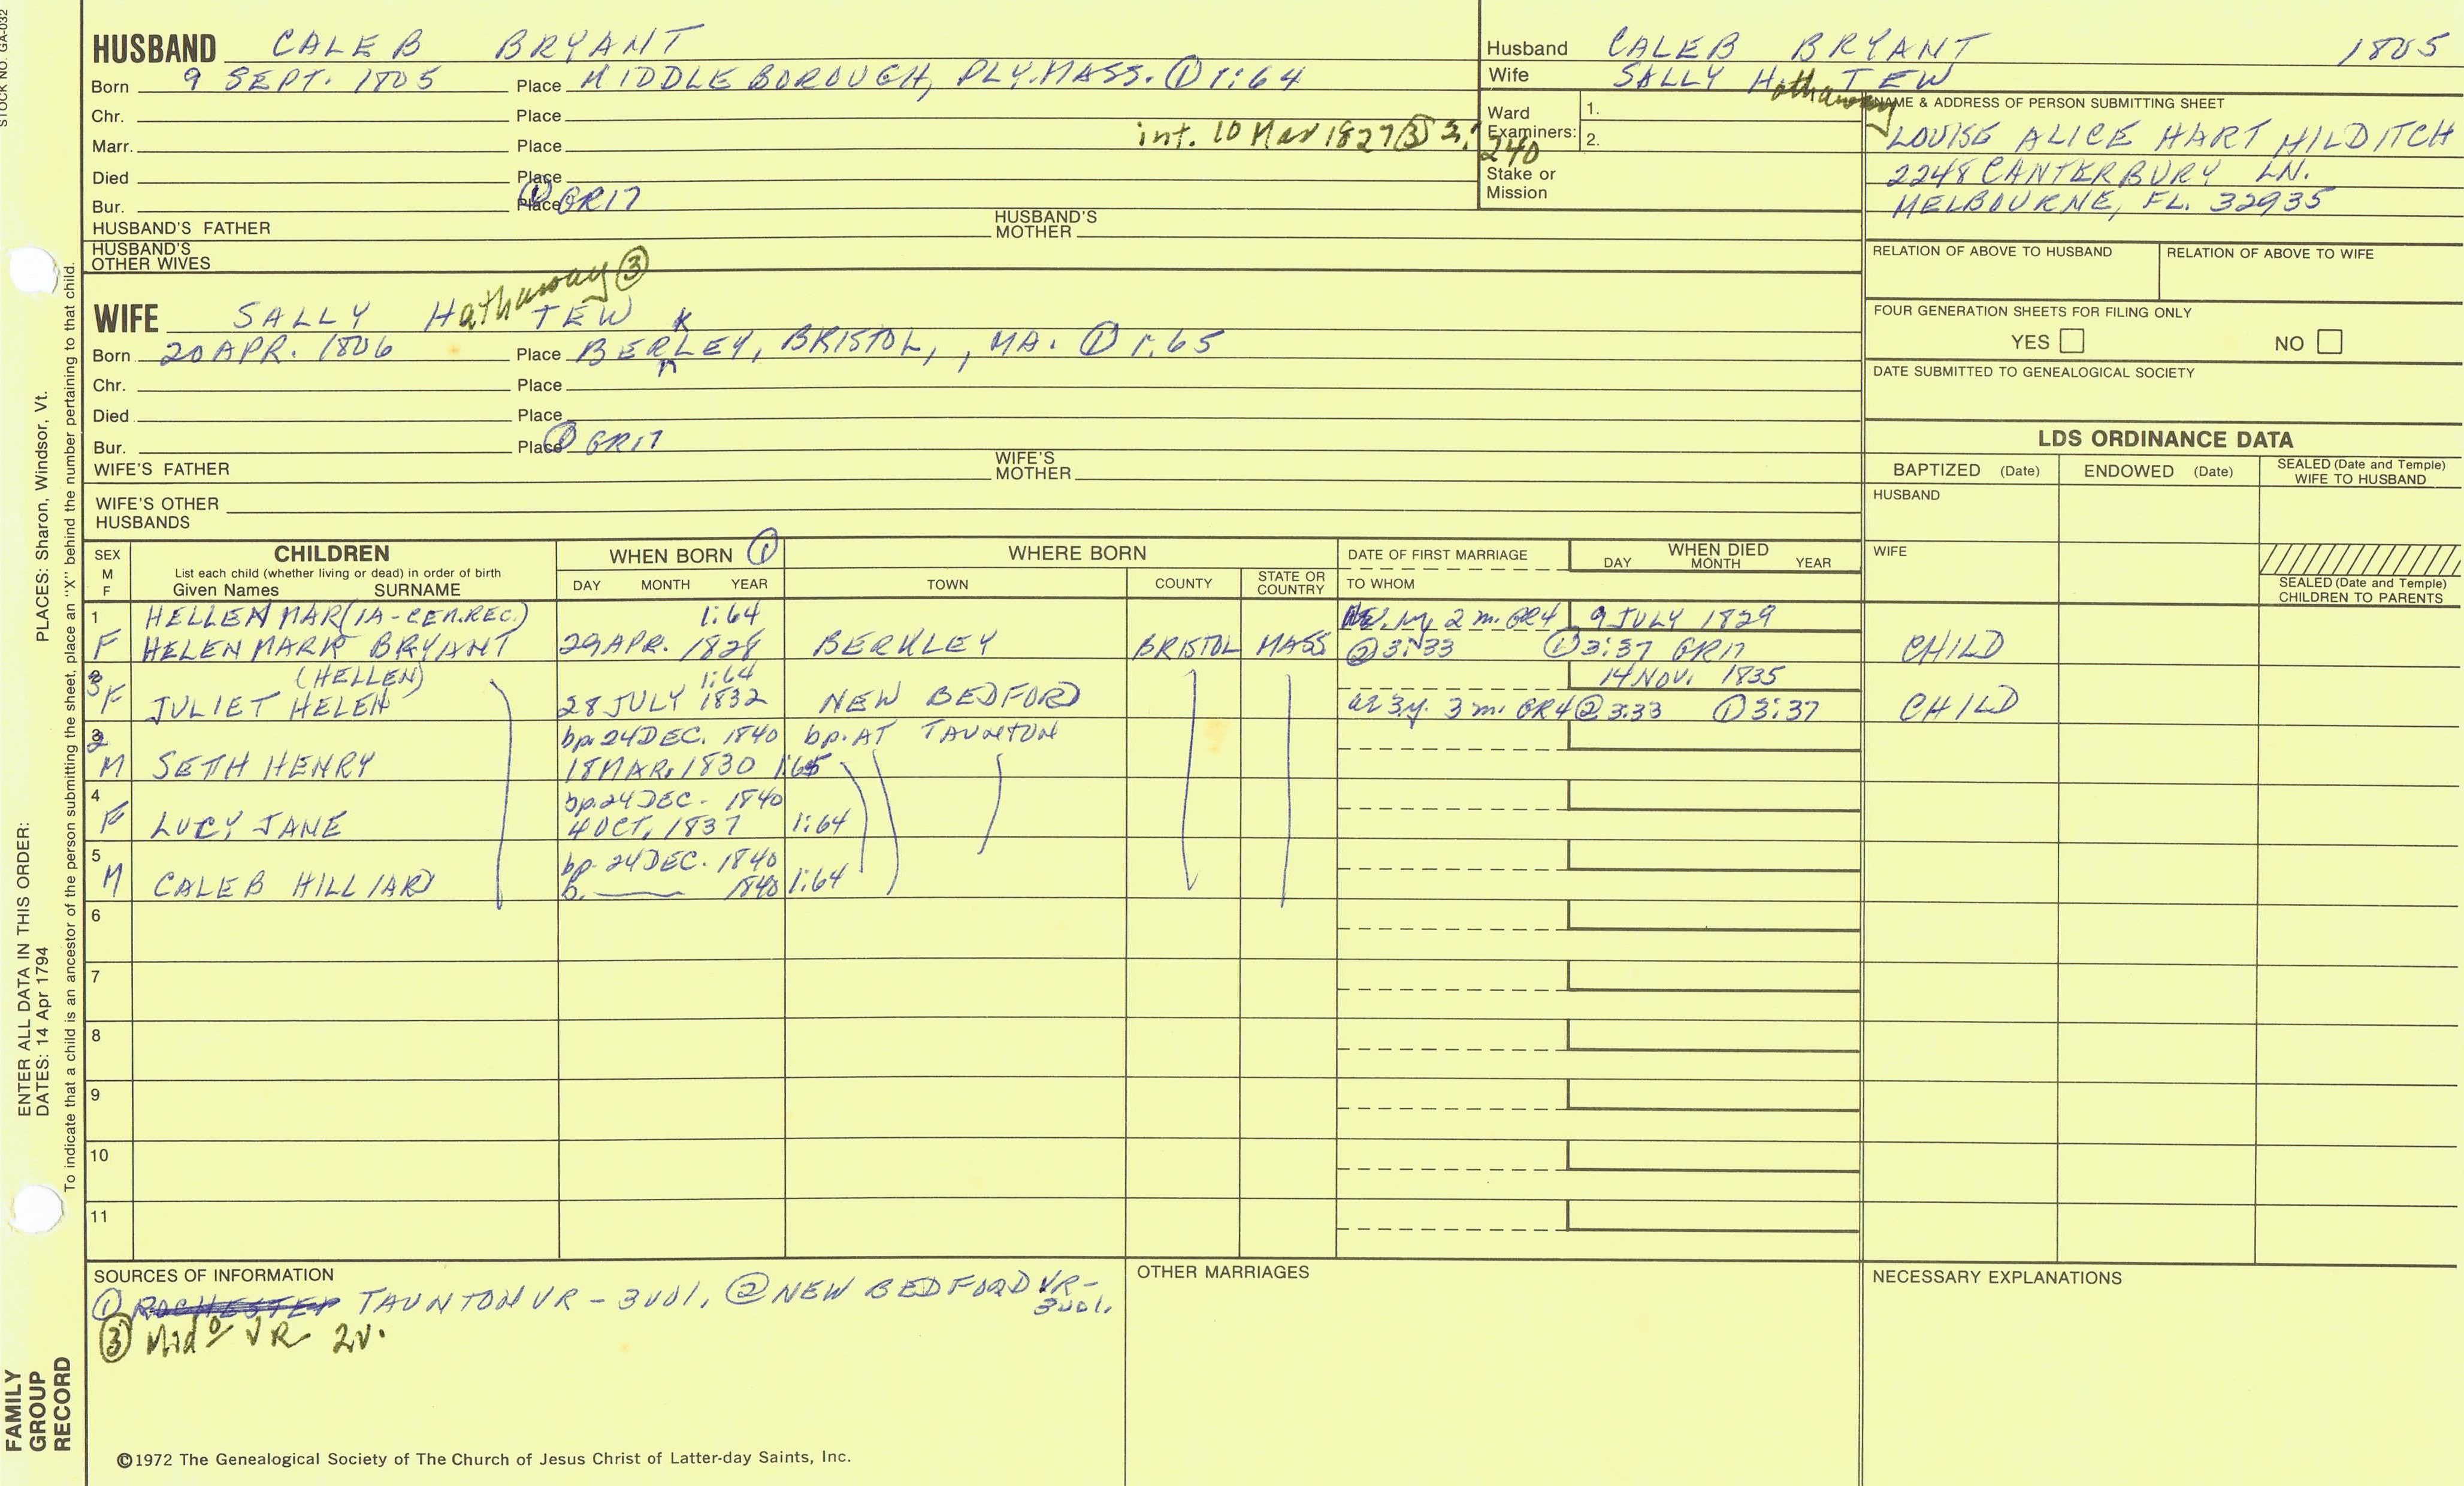 STOCK NO. GA-032
HUSBAND CALEB BRYANT
Born 9 SEPT. 1805 Place MIDDLEBOROUGH, PLY. MASS. ① 1:64
Chr. Place
Marr. Place int. 10 Mar 1827 ③ 2: 240
Died Place
Bur. Place ① GR17
HUSBAND'S FATHER HUSBAND'S MOTHER
HUSBAND'S OTHER WIVES
WIFE SALLY Hathaway ③ TEW
Born 20 APR. 1806 Place BERKLEY, BRISTOL, , MA. ① 1:65
Chr. Place
Died Place
Bur. Place ① GR17
WIFE'S FATHER WIFE'S MOTHER
WIFE'S OTHER HUSBANDS
Husband CALEB BRYANT 1805
Wife SALLY Hathaway TEW
Ward Examiners: 1.
2.
Stake or Mission
NAME & ADDRESS OF PERSON SUBMITTING SHEET
LOUISE ALICE HART HILDITCH
2248 CANTERBURY LN.
MELBOURNE, FL. 32935
RELATION OF ABOVE TO HUSBAND RELATION OF ABOVE TO WIFE
FOUR GENERATION SHEETS FOR FILING ONLY
YES NO
DATE SUBMITTED TO GENEALOGICAL SOCIETY
LDS ORDINANCE DATA
BAPTIZED (Date) ENDOWED (Date) SEALED (Date and Temple) WIFE TO HUSBAND
HUSBAND
WIFE
SEALED (Date and Temple) CHILDREN TO PARENTS
SEX M F CHILDREN WHEN BORN ① WHERE BORN DATE OF FIRST MARRIAGE WHEN DIED
List each child (whether living or dead) in order of birth
Given Names SURNAME DAY MONTH YEAR TOWN COUNTY STATE OR COUNTRY TO WHOM DAY MONTH YEAR
1 HELLEN MAR(IA-CEM.REC.) 1:64 2 m. GR4 9 JULY 1829
F HELEN MARK BRYANT 29 APR. 1828 BERKLEY BRISTOL MASS ② 3:33 ① 3:37 GR17 CHILD
3 (HELLEN) 1:64 14 NOV. 1835
F JULIET HELEN 28 JULY 1832 NEW BEDFORD ae 3y. 3 m. GR4 ② 3:33 ① 3:37 CHILD
2 bp. 24 DEC. 1840 bp. AT TAUNTON
M SETH HENRY 18 MAR. 1830 1:65
4 bp. 24 DEC. 1840
F LUCY JANE 4 OCT. 1837 1:64
5 bp. 24 DEC. 1840
M CALEB HILLIARD b. —— 1840 1:64
6
7
8
9
10
11
SOURCES OF INFORMATION
① ROCHESTER TAUNTON VR - 3 vol. ② NEW BEDFORD VR - 3 vol.
③ Midº VR 2v.
OTHER MARRIAGES
NECESSARY EXPLANATIONS
©1972 The Genealogical Society of The Church of Jesus Christ of Latter-day Saints, Inc.
FAMILY GROUP RECORD
ENTER ALL DATA IN THIS ORDER:
DATES: 14 Apr 1794
PLACES: Sharon, Windsor, Vt.
To indicate that a child is an ancestor of the person submitting the sheet, place an "X" behind the number pertaining to that child.